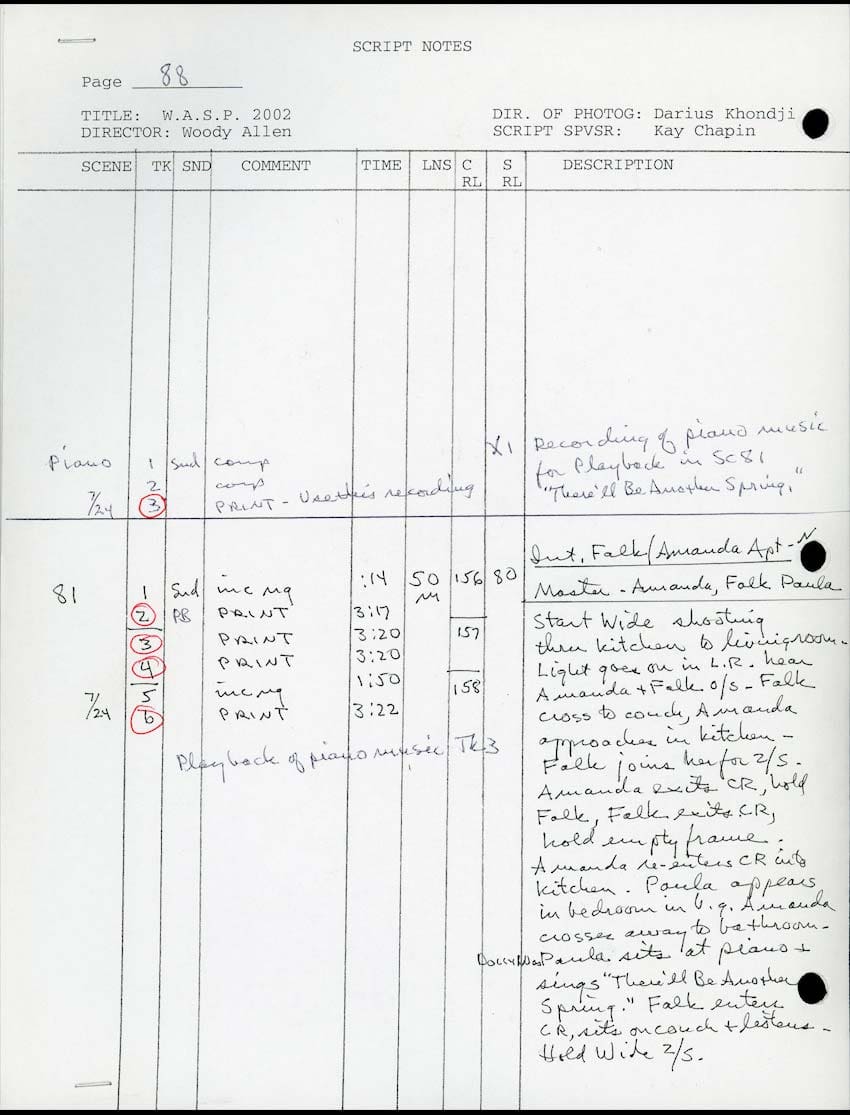 SCRIPT NOTES
Page 88
TITLE: W.A.S.P. 2002
DIRECTOR: Woody Allen
DIR. OF PHOTOG: Darius Khondji
SCRIPT SPVSR: Kay Chapin
SCENE TK SND COMMENT TIME LNS C RL S RL DESCRIPTION
Piano 1 Snd comp X1 Recording of piano music
2 comp for Playback in SC81
7/24 3 PRINT - Use this recording "There'll Be Another Spring."
Int. Falk/Amanda Apt - N
81 1 Snd inc ng :14 50 M 156 80 Master - Amanda, Falk Paula
2 PB PRINT 3:17
3 PRINT 3:20 157
4 PRINT 3:20
5 inc ng 1:50 158
7/24 6 PRINT 3:22
Playback of piano music Tk3
Start Wide shooting
thru kitchen to livingroom -
Light goes on in L.R. hear
Amanda + Falk o/s - Falk
cross to couch, Amanda
approaches in kitchen -
Falk joins her for 2/S.
Amanda exits CR, hold
Falk, Falk exits CR,
hold empty frame.
Amanda re-enters CR into
kitchen. Paula appears
in bedroom in b.g. Amanda
crosses away to bathroom -
Paula sits at piano +
sings "There'll Be Another
Spring." Falk enters
CR, sits on couch + listens -
Hold Wide 2/S.